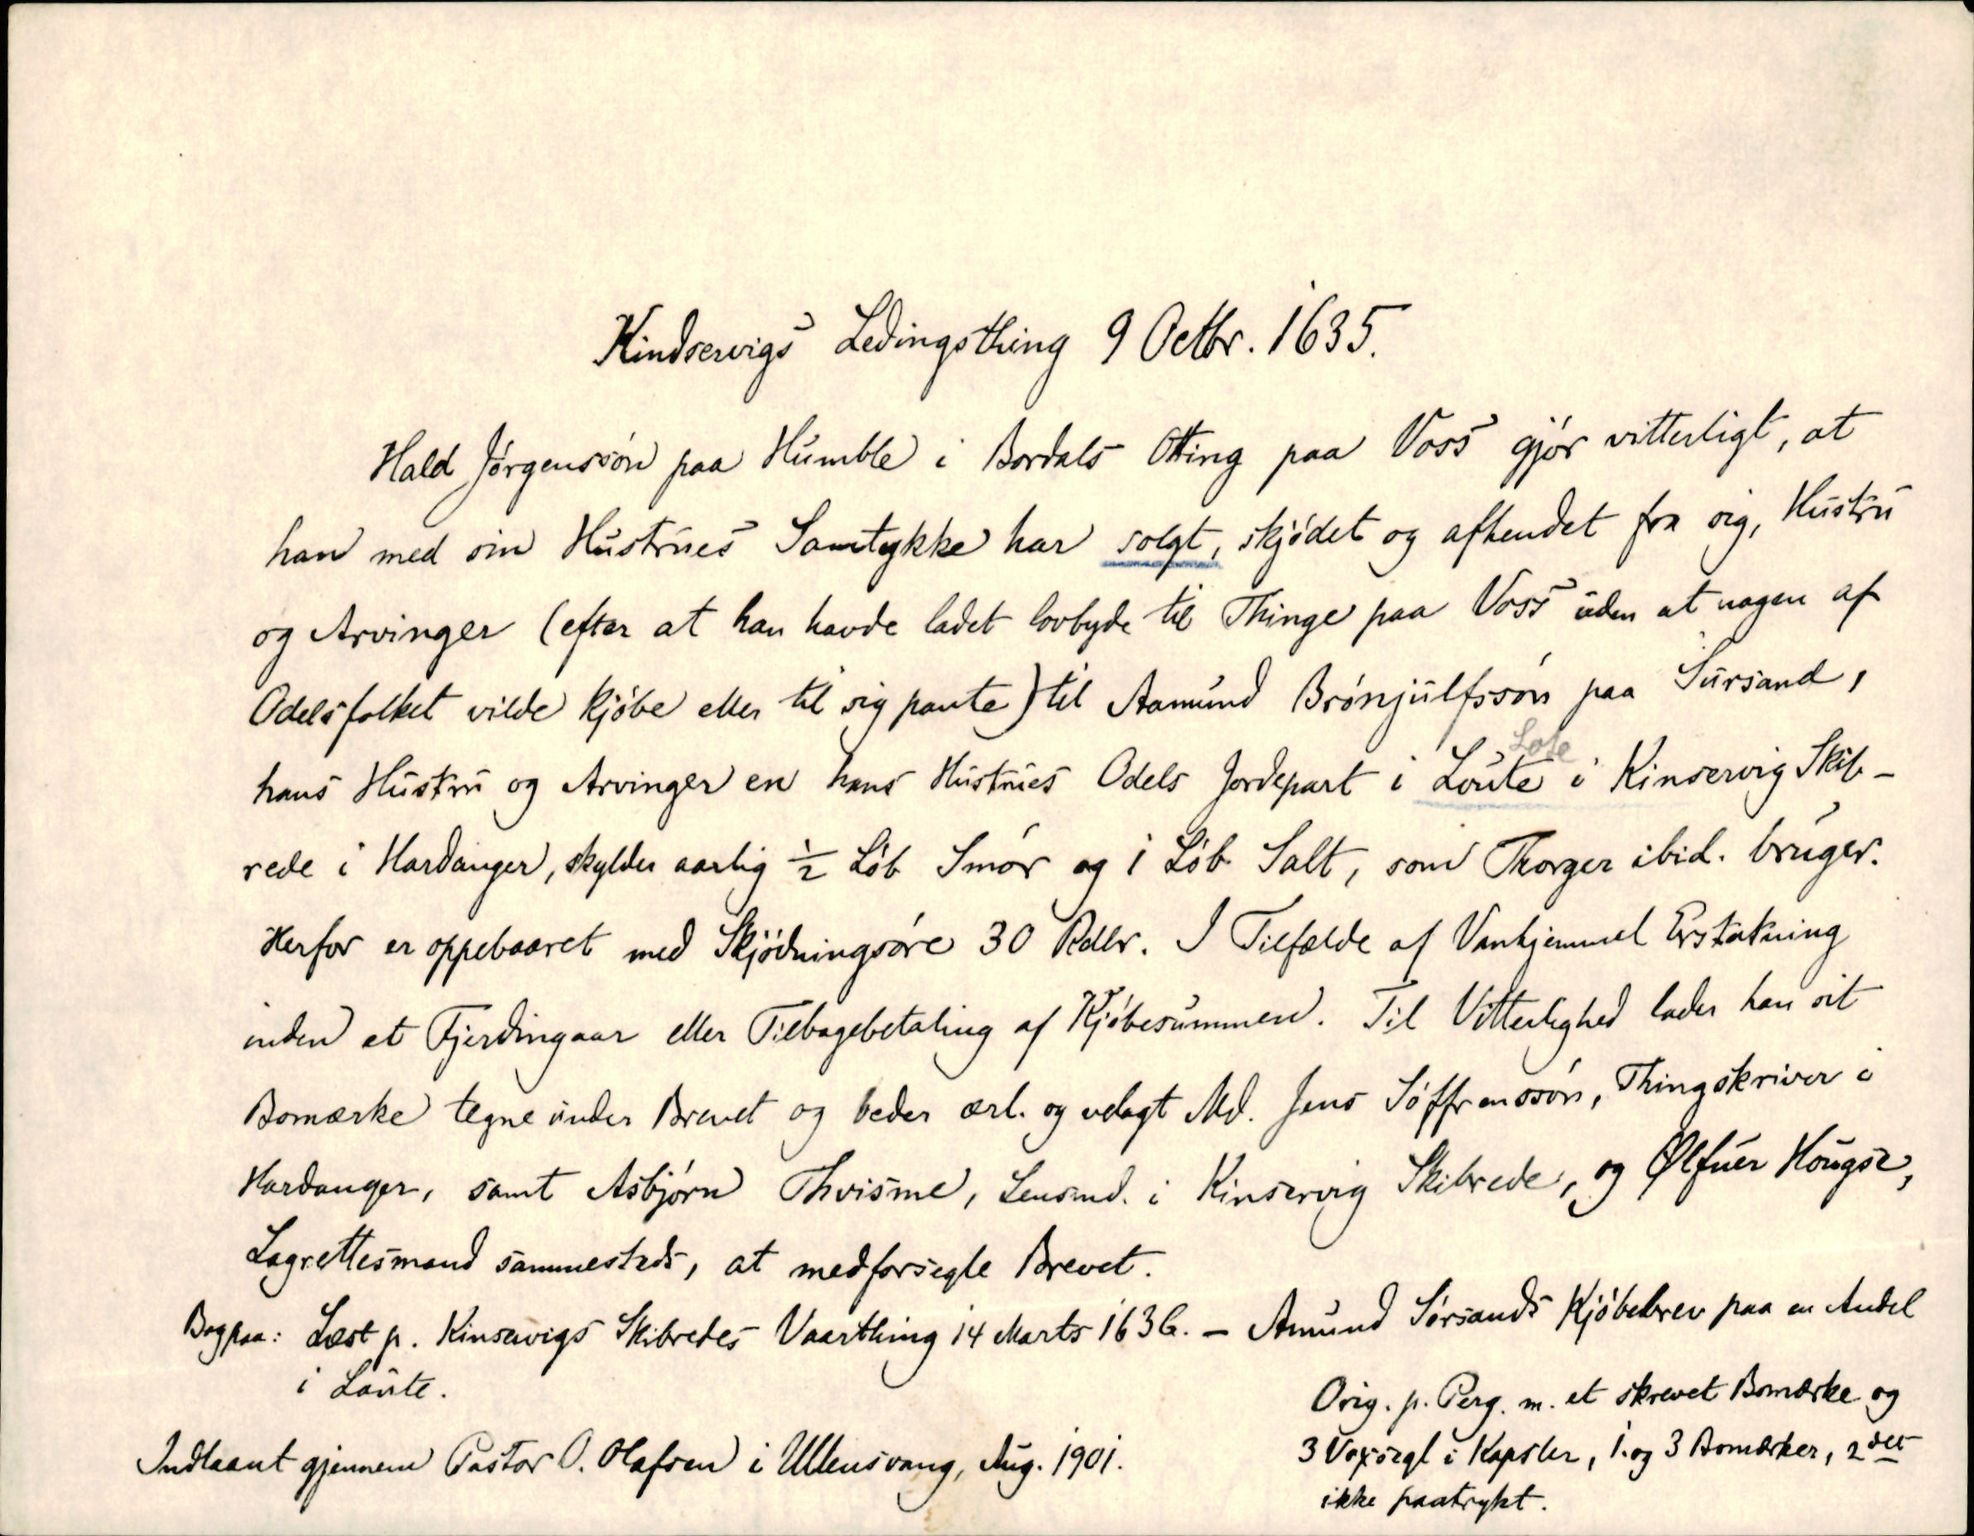 Kindservigs Ledingsthing 9 Octbr. 1635.
Hald Jörgenssön paa Humble i Bordals Otting paa Voss gjör vitterligt, at
han med sin Hustrues Samtykke har solgt, skjödet og afhendet fra sig, Hustru
og Arvinger (efter at han havde ladet lovbyde til Thinge paa Voss uden at nogen af
Odelsfolket vilde kjöbe eller til sig pante) til Aamund Brönjulfssön paa Sursand,
Lote
hans Hustru og Arvinger en hans Hustrues Odels Jordepart i Loute i Kinservig Skib-
rede i Hardanger, skylder aarlig ½ Löb Smör og 1 Löb Salt, som Thorger ibid. bruger.
Herfor er oppebaaret med Skjödningsöre 30 Rdlr. I Tilfælde af Vanhjemmel Erstatning
inden et Fjerdingaar eller Tilbagebetaling af Kjöbesummen. Til Vitterlighed lader han sit
Bomærke tegne under Brevet og beder ærl. og velagt Md. Jens Söffrenssön, Thingskriver i
Hardanger, samt Asbjörn Thvisme, Lensmd. i Kinservig Skibrede, og Ølfuer Hougse,
Lagrettesmand sammesteds, at medforsegle Brevet.
Bag paa: Læst p. Kinservigs Skibredes Vaarthing 14 Marts 1636. — Amund Sörsands Kjöbebrev paa en Andel
i Loute.
Orig. p. Perg. m. et skrevet Bomærke og
3 Voxsegl i Kapsler, 1. og 3 Bomærker, 2det
ikke paatrykt.
Indlaant gjennem Pastor O. Olafsen i Ullensvang, Aug. 1901.